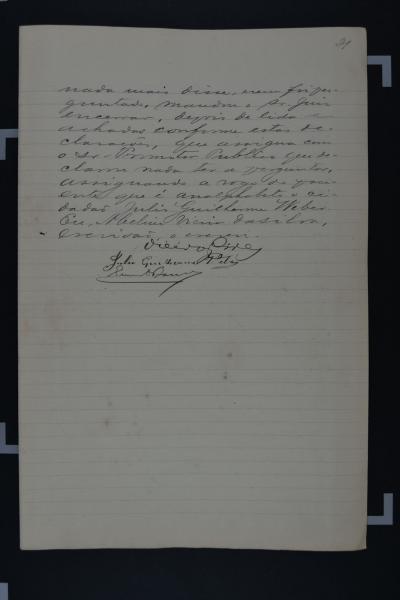 21
nada mais disse, nem foi per-
guntado, mandou o Sr. Juiz
encerrar, depois de lido e
achadas conforme estas de-
clarações, que assigna com
o Dr. Promotor Publico que de-
clarou nada ter a perguntar,
assignando a rogo do
que é analphabeto o ci-
dadão Julio Guilherme Weber.
Eu, Vieira da Silva,
escrivão, o escrevi.
Julio Guilherme